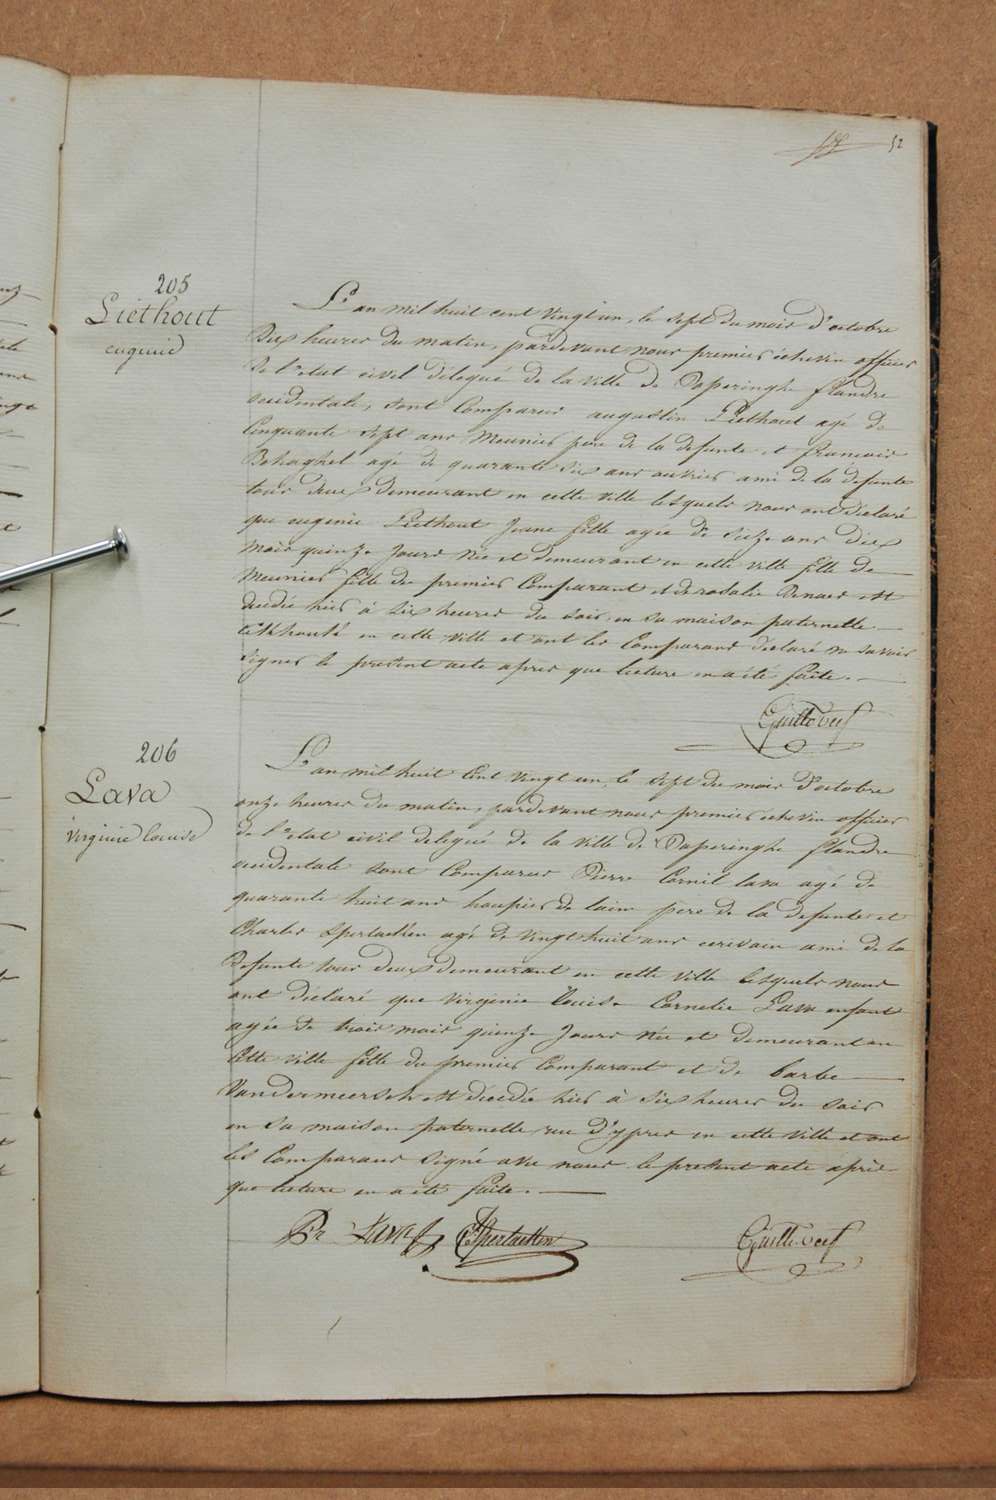 52
205
Liethout
eugenie
L'an mil huit cent vingt un, le sept du mois d'octobre
Dix heures du matin, pardevant nous premier échevin officier
De l'etat civil délegué de la ville de Poperinghe flandre
occidentale, sont Comparus augustin Liethout agé de
Cinquante sept ans Meunier pere de la defunte et francois
Behaghel agé de quarante six ans ouvrier ami de la defunte
tous deux demeurant en cette ville lesquels nous ont déclaré
que eugenie Liethout Jeune fille agée de seize ans dix
mois quinze Jours Née et demeurant en cette ville fille de
Meunier fille du premier Comparant et de rosalie est
decedée hier à six heures du soir, en sa maison paternelle
en cette ville et ont les Comparans déclaré ne savoir
signer le présent acte apres que lecture en a été faite.
206
Lava
virginie louise
L'an mil huit Cent vingt un, le sept du mois d'octobre
onze heures du matin, pardevant nous premier échevin officier
de l'etat civil delegué de la ville de Poperinghe flandre
occidentale sont Comparus Pierre Cornil lava agé de
quarante huit ans houpier de laine pere de la defunte et
Charles Spertaelen agé de vingt huit ans ecrivain ami de la
Defunte tous deux demeurant en cette ville lesquels nous
ont déclaré que virginie louise Cornelie Lava enfant
agée de trois mois quinze Jours Née et demeurant en
Cette ville fille du premier Comparant et de barbe
Vandermeersch est decedée hier à six heures du soir
en sa maison paternelle rue d'ypres en cette ville et ont
les Comparans signé avec nous le present acte après
que lecture en a été faite.
Pr Lava